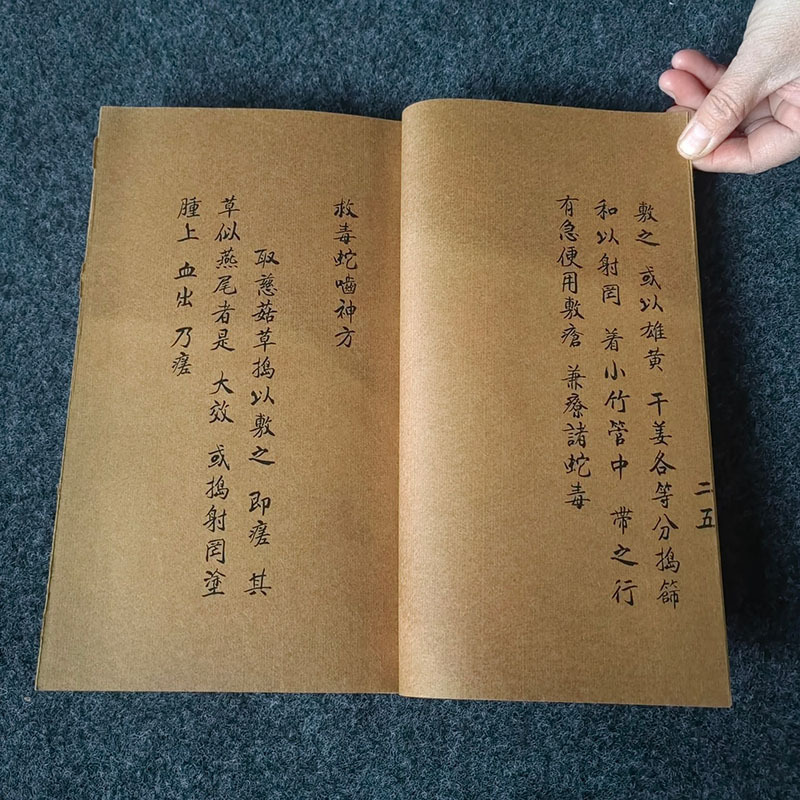 敷之 或以雄黄 干姜各等分搗篩
和以射罔 着小竹管中 带之行
有急便用敷瘡 兼療諸蛇毒
二五
救毒蛇嚙神方
取慈菇草搗以敷之 即瘥 其
草似燕尾者是 大效 或搗射罔塗
腫上 血出 乃瘥